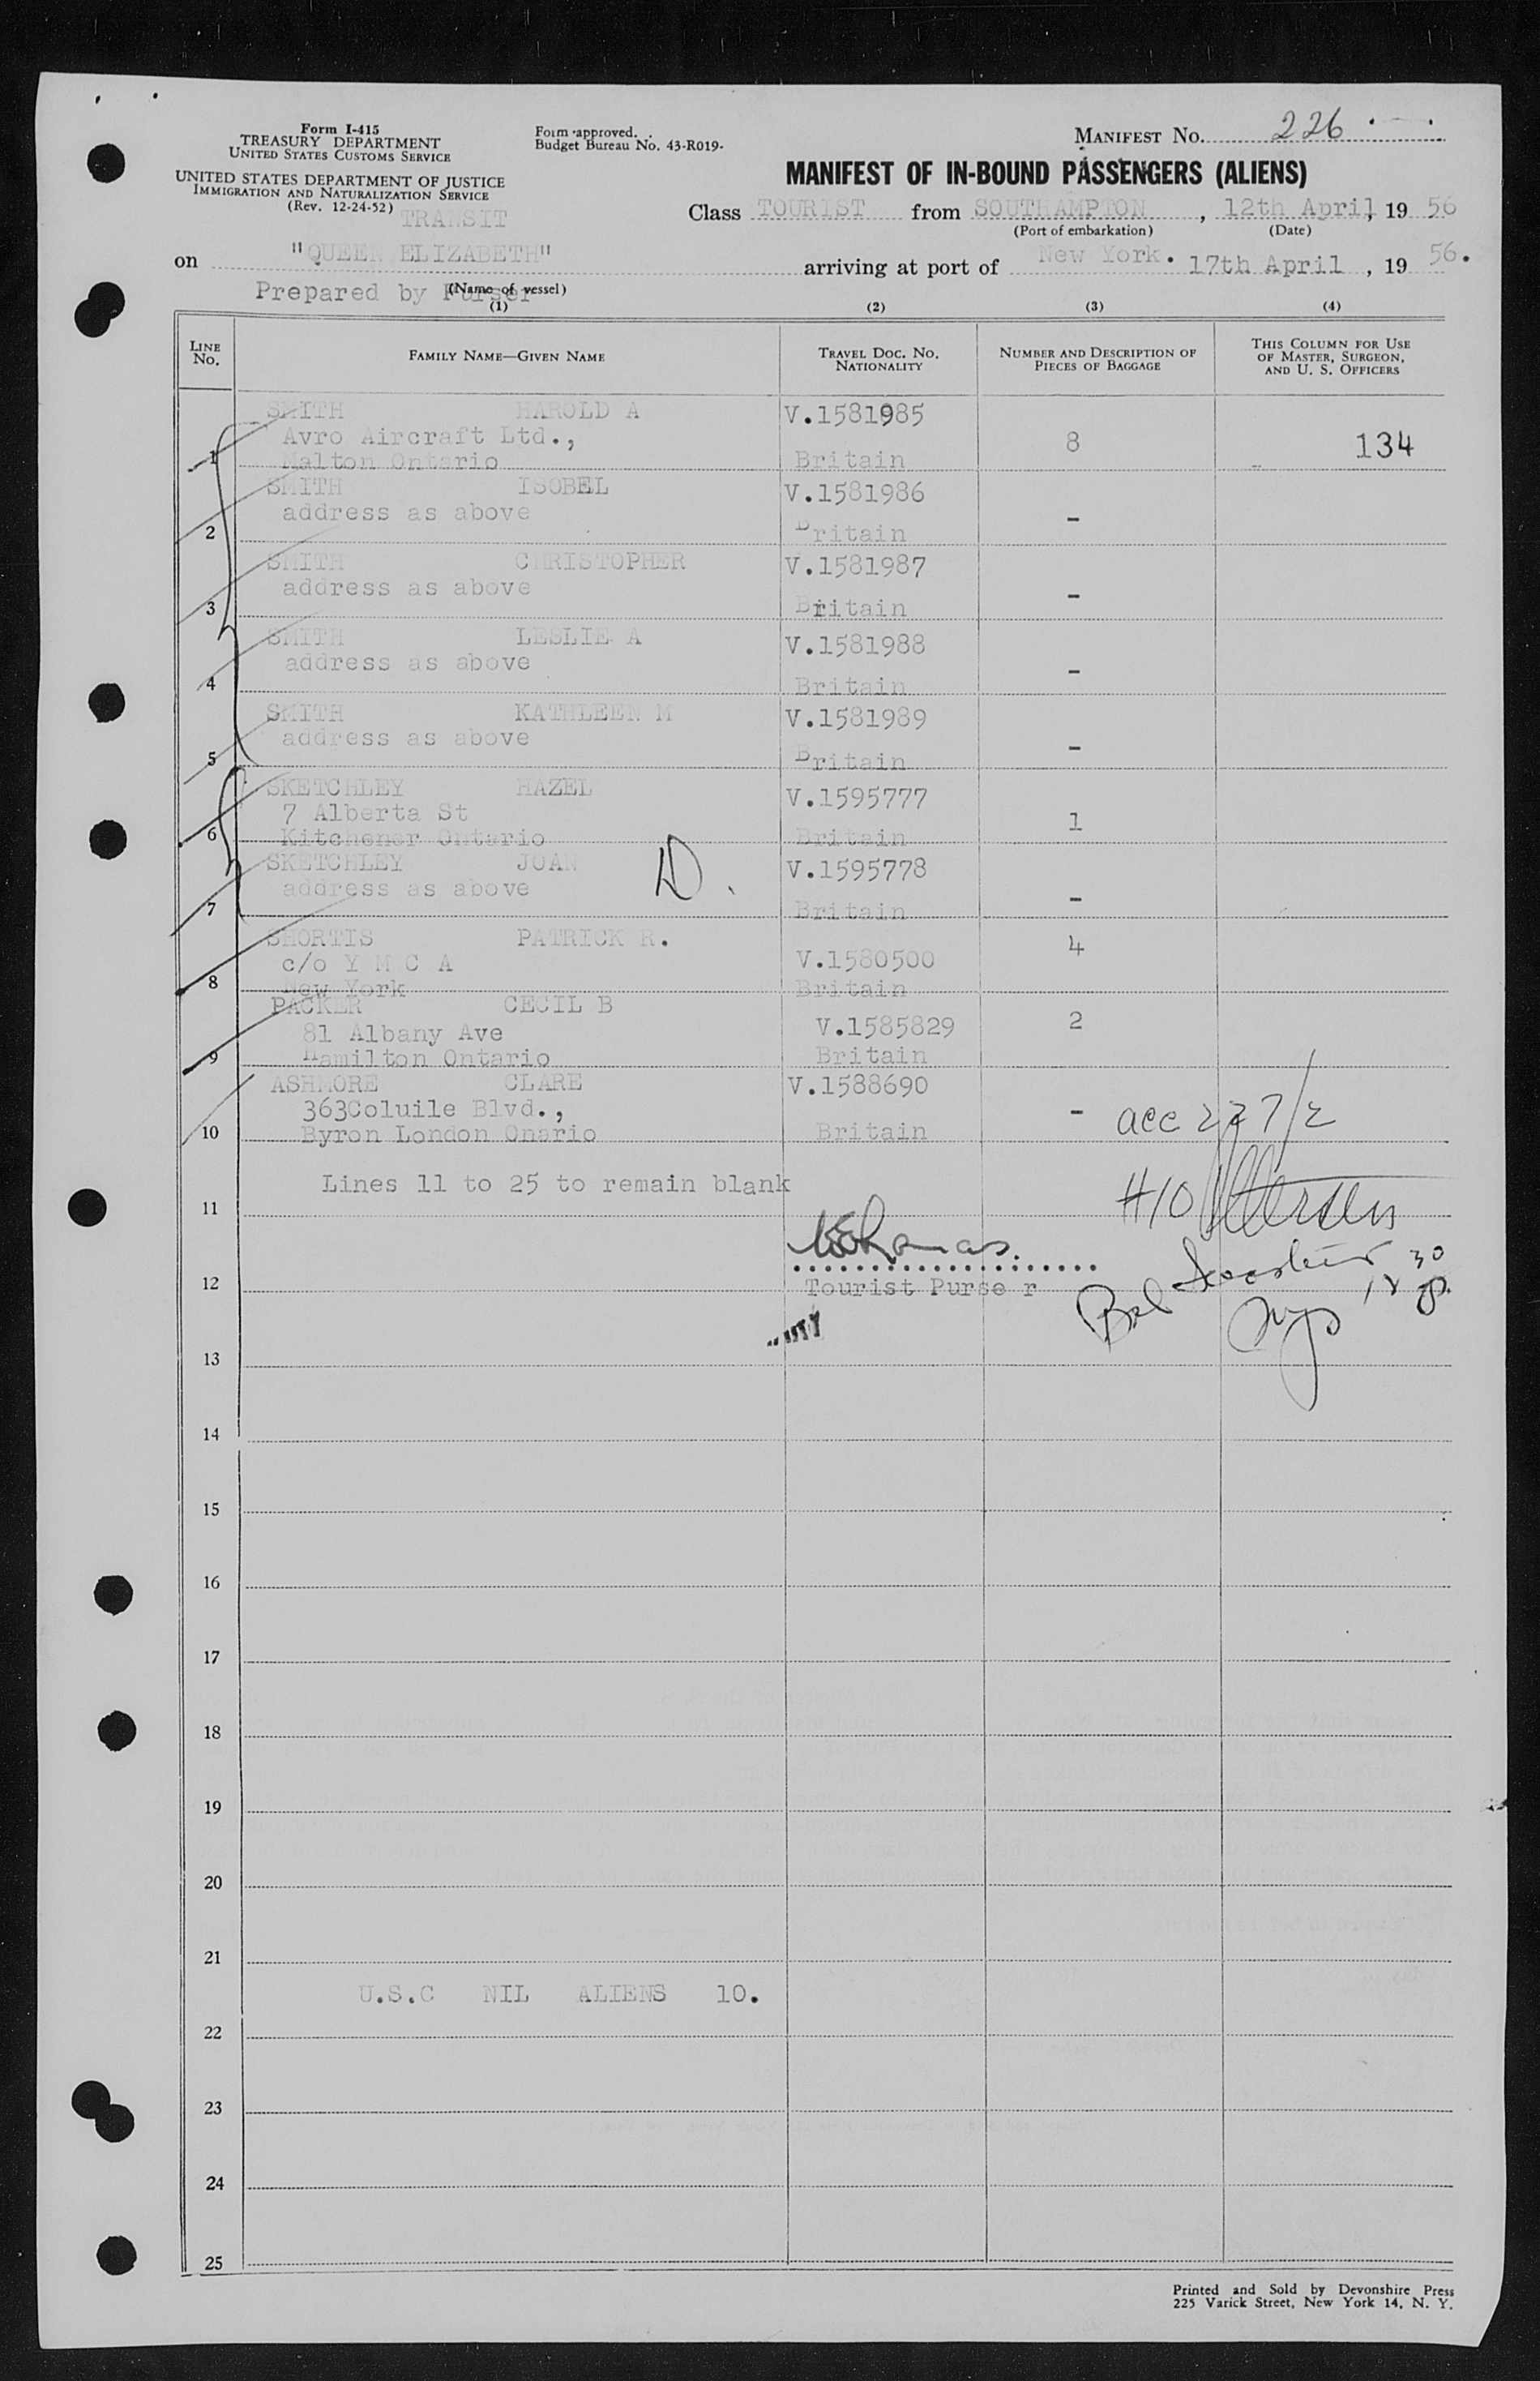 Form I-415
TREASURY DEPARTMENT
UNITED STATES CUSTOMS SERVICE
UNITED STATES DEPARTMENT OF JUSTICE
IMMIGRATION AND NATURALIZATION SERVICE
(Rev. 12-24-52)
TRANSIT
Form approved.
Budget Bureau No. 43-R019.
MANIFEST No. 226
MANIFEST OF IN-BOUND PASSENGERS (ALIENS)
Class TOURIST from SOUTHAMPTON, 12th April, 19 56
(Port of embarkation) (Date)
on "QUEEN ELIZABETH" arriving at port of New York. 17th April, 19 56.
Prepared by Purser (Name of vessel)
(1) (2) (3) (4)
LINE No. FAMILY NAME—GIVEN NAME TRAVEL DOC. NO. NATIONALITY NUMBER AND DESCRIPTION OF PIECES OF BAGGAGE THIS COLUMN FOR USE OF MASTER, SURGEON, AND U. S. OFFICERS
SMITH HAROLD A V.1581985
Avro Aircraft Ltd., 8 134
1 Malton Ontario Britain
SMITH ISOBEL V.1581986
address as above -
2 Britain
SMITH CHRISTOPHER V.1581987
address as above -
3 Britain
SMITH LESLIE A V.1581988
address as above -
4 Britain
SMITH KATHLEEN M V.1581989
address as above -
5 Britain
SKETCHLEY HAZEL V.1595777
7 Alberta St 1
6 Kitchener Ontario Britain
SKETCHLEY JOAN V.1595778
address as above -
7 Britain
SHORTIS PATRICK R. 4
c/o Y M C A V.1580500
8 New York Britain
PACKER CECIL B
81 Albany Ave V.1585829 2
9 Hamilton Ontario Britain
ASHMORE CLARE V.1588690
363Coluile Blvd., - acc 227/2
10 Byron London Onario Britain
Lines 11 to 25 to remain blank
11
12 Tourist Purse r
13
14
15
16
17
18
19
20
21
U.S.C NIL ALIENS 10.
22
23
24
25
Printed and Sold by Devonshire Press
225 Varick Street, New York 14, N. Y.